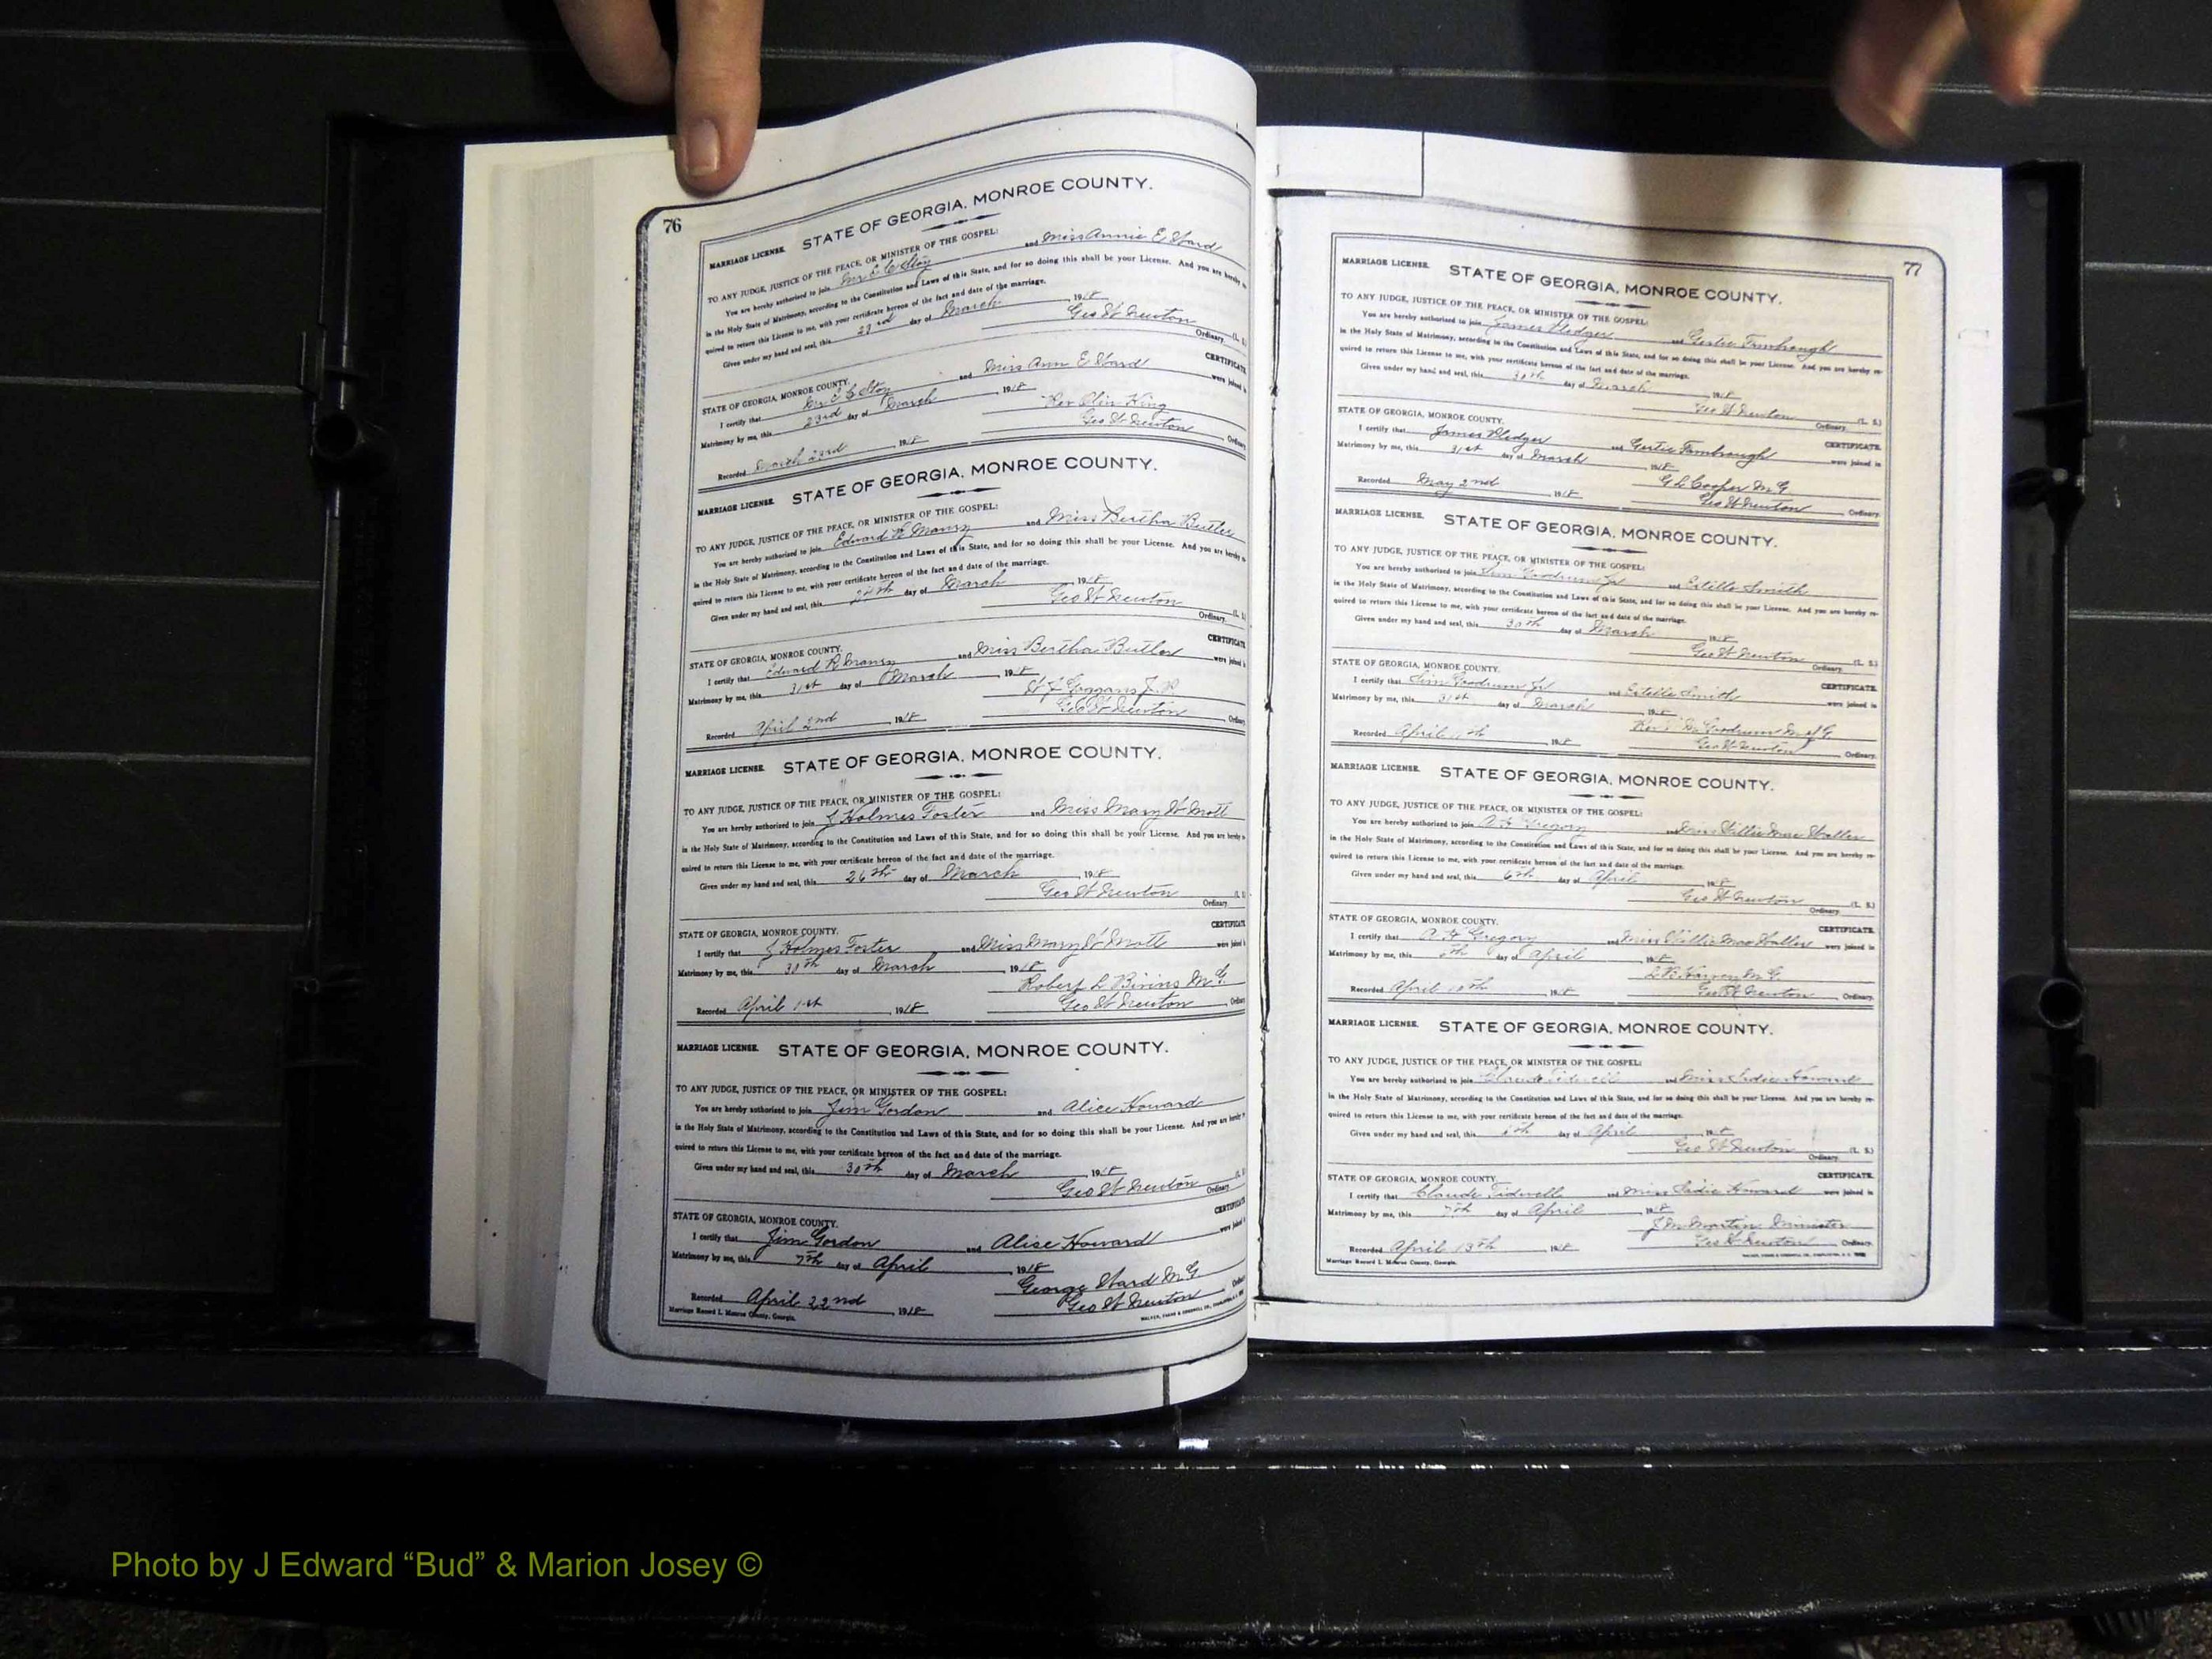 76
MARRIAGE LICENSE. STATE OF GEORGIA, MONROE COUNTY.
TO ANY JUDGE, JUSTICE OF THE PEACE, OR MINISTER OF THE GOSPEL:
You are hereby authorized to join Mr and Miss Annie E Ward
in the Holy State of Matrimony, according to the Constitution and Laws of this State, and for so doing this shall be your License. And you are hereby re-
quired to return this License to me, with your certificate hereon of the fact and date of the marriage.
Given under my hand and seal, this 23rd day of March, 1918
Geo W Newton
Ordinary. (L. S.)
CERTIFICATE.
STATE OF GEORGIA, MONROE COUNTY.
I certify that Mr and Miss Ann E Ward were joined in
Matrimony by me, this 23rd day of March, 1918
Rev Olin King
Recorded March 23rd 1918 Geo W Newton Ordinary
MARRIAGE LICENSE. STATE OF GEORGIA, MONROE COUNTY.
TO ANY JUDGE, JUSTICE OF THE PEACE, OR MINISTER OF THE GOSPEL:
You are hereby authorized to join Edward R and Miss Bertha Butler
in the Holy State of Matrimony, according to the Constitution and Laws of this State, and for so doing this shall be your License. And you are hereby re-
quired to return this License to me, with your certificate hereon of the fact and date of the marriage.
Given under my hand and seal, this day of March, 1918
Geo W Newton (L. S.)
Ordinary.
CERTIFICATE
STATE OF GEORGIA, MONROE COUNTY.
I certify that Edward R and Miss Bertha Butler were joined in
Matrimony by me, this 31st day of March, 1918
Goggans J. P.
Recorded April 2nd, 1918 Geo W Newton Ordinary
MARRIAGE LICENSE. STATE OF GEORGIA, MONROE COUNTY.
TO ANY JUDGE, JUSTICE OF THE PEACE, OR MINISTER OF THE GOSPEL:
You are hereby authorized to join J Holmes Foster and Miss Mary W Mott
in the Holy State of Matrimony, according to the Constitution and Laws of this State, and for so doing this shall be your License. And you are hereby re-
quired to return this License to me, with your certificate hereon of the fact and date of the marriage.
Given under my hand and seal, this 26th day of March, 1918
Geo W Newton (L. S.)
Ordinary.
CERTIFICATE
STATE OF GEORGIA, MONROE COUNTY.
I certify that J Holmes Foster and Miss Mary W Mott were joined in
Matrimony by me, this 30th day of March, 1918
Robert L Bivins M G.
Recorded April 1st, 1918 Geo W Newton, Ordinary
MARRIAGE LICENSE. STATE OF GEORGIA, MONROE COUNTY.
TO ANY JUDGE, JUSTICE OF THE PEACE, OR MINISTER OF THE GOSPEL:
You are hereby authorized to join Jim Gordon and Alice Howard
in the Holy State of Matrimony, according to the Constitution and Laws of this State, and for so doing this shall be your License. And you are hereby re-
quired to return this License to me, with your certificate hereon of the fact and date of the marriage.
Given under my hand and seal, this 30th day of March, 1918
Geo W Newton (L. S.)
Ordinary
CERTIFICATE
STATE OF GEORGIA, MONROE COUNTY.
I certify that Jim Gordon and Alise Howard were joined in
Matrimony by me, this 7th day of April, 1918
George Ward M G
Recorded April 22nd, 1918 Geo W Newton Ordinary
Marriage Record L Monroe County, Georgia.
77
MARRIAGE LICENSE. STATE OF GEORGIA, MONROE COUNTY.
TO ANY JUDGE, JUSTICE OF THE PEACE, OR MINISTER OF THE GOSPEL:
You are hereby authorized to join James Pledger and Gertie Fambrough
in the Holy State of Matrimony, according to the Constitution and Laws of this State, and for so doing this shall be your License. And you are hereby re-
quired to return this License to me, with your certificate hereon of the fact and date of the marriage.
Given under my hand and seal, this 30th day of March, 1918
Geo W Newton (L. S.)
Ordinary.
STATE OF GEORGIA, MONROE COUNTY. CERTIFICATE.
I certify that James Pledger and Gertie Fambrough were joined in
Matrimony by me, this 31st day of March, 1918
G L Cooper M G
Recorded May 2nd, 1918 Geo W Newton, Ordinary.
MARRIAGE LICENSE. STATE OF GEORGIA, MONROE COUNTY.
TO ANY JUDGE, JUSTICE OF THE PEACE, OR MINISTER OF THE GOSPEL:
You are hereby authorized to join Goodrum Jr and Estelle Smith
in the Holy State of Matrimony, according to the Constitution and Laws of this State, and for so doing this shall be your License. And you are hereby re-
quired to return this License to me, with your certificate hereon of the fact and date of the marriage.
Given under my hand and seal, this 30th day of March, 1918
Geo W Newton (L. S.)
Ordinary.
STATE OF GEORGIA, MONROE COUNTY. CERTIFICATE.
I certify that Goodrum Jr and Estelle Smith were joined in
Matrimony by me, this 31st day of March, 1918
Rev Goodrum M of G
Recorded April, 1918 Geo W Newton Ordinary.
MARRIAGE LICENSE. STATE OF GEORGIA, MONROE COUNTY.
TO ANY JUDGE, JUSTICE OF THE PEACE, OR MINISTER OF THE GOSPEL:
You are hereby authorized to join Gregory and Miss Willie Mae Waller
in the Holy State of Matrimony, according to the Constitution and Laws of this State, and for so doing this shall be your License. And you are hereby re-
quired to return this License to me, with your certificate hereon of the fact and date of the marriage.
Given under my hand and seal, this 6th day of April, 1918
Geo W Newton (L. S.)
Ordinary.
STATE OF GEORGIA, MONROE COUNTY. CERTIFICATE.
I certify that Gregory and Miss Willie Mae Waller were joined in
Matrimony by me, this day of April, 1918
M G
Recorded April, 1918 Geo W Newton, Ordinary.
MARRIAGE LICENSE. STATE OF GEORGIA, MONROE COUNTY.
TO ANY JUDGE, JUSTICE OF THE PEACE, OR MINISTER OF THE GOSPEL:
You are hereby authorized to join Claude Tidwell and Miss Sadie Howard
in the Holy State of Matrimony, according to the Constitution and Laws of this State, and for so doing this shall be your License. And you are hereby re-
quired to return this License to me, with your certificate hereon of the fact and date of the marriage.
Given under my hand and seal, this day of April, 1918
Geo W Newton (L. S.)
Ordinary.
STATE OF GEORGIA, MONROE COUNTY. CERTIFICATE.
I certify that Claude Tidwell and Miss Sadie Howard were joined in
Matrimony by me, this 7th day of April, 1918
J M Martin Minister
Recorded April 13th, 1918 Geo W Newton Ordinary.
Marriage Record L Monroe County, Georgia.
Photo by J Edward “Bud” & Marion Josey ©